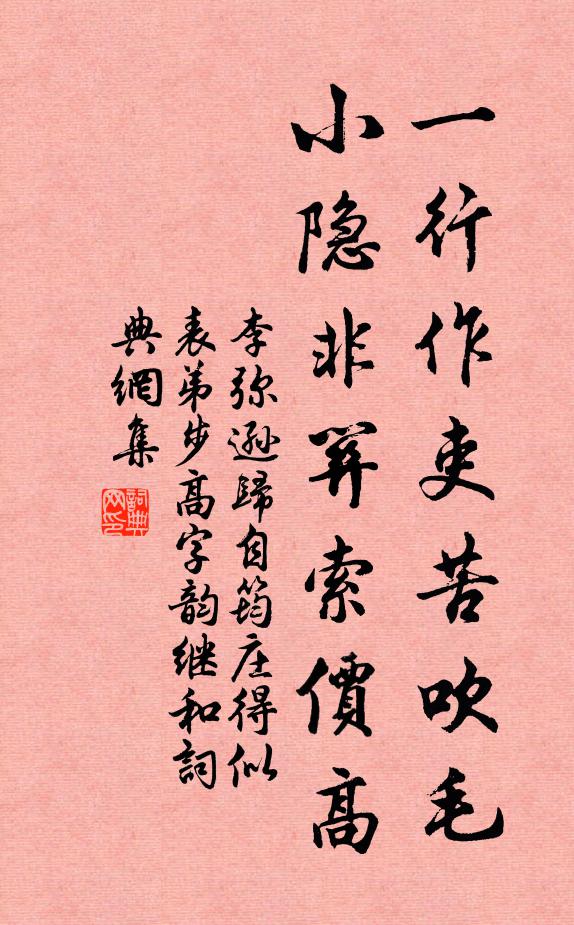 一行作吏苦吹毛
小隐非关索價高
李弥遜歸自筠庄得似
表弟步高字韵继和詞
典網集
詞典
网印